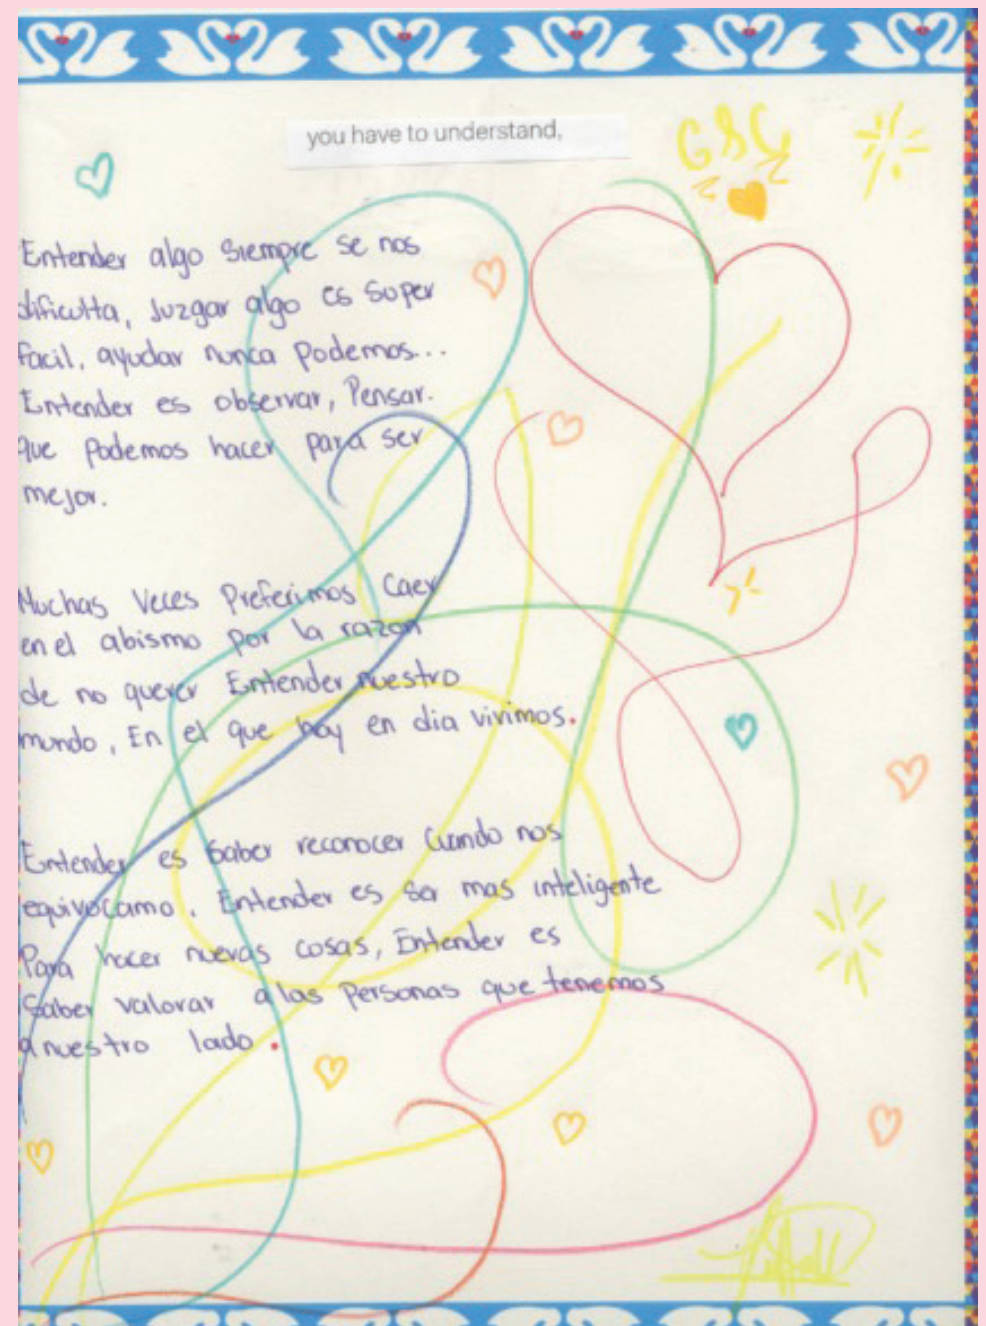 you have to understand,
GSC
Entender algo Siempre se nos
dificulta, Juzgar algo es super
facil, ayudar nunca Podemos...
Entender es observar, Pensar.
que Podemos hacer para ser
mejor.
Muchas Veces Preferimos Caer
en el abismo por la razon
de no querer Entender nuestro
mundo, En el que hoy en dia vivimos.
Entender es Saber reconocer Cuando nos
equivocamo. Entender es ser mas inteligente
Para hacer nuevas cosas, Entender es
Saber valorar a las Personas que tenemos
a nuestro lado.